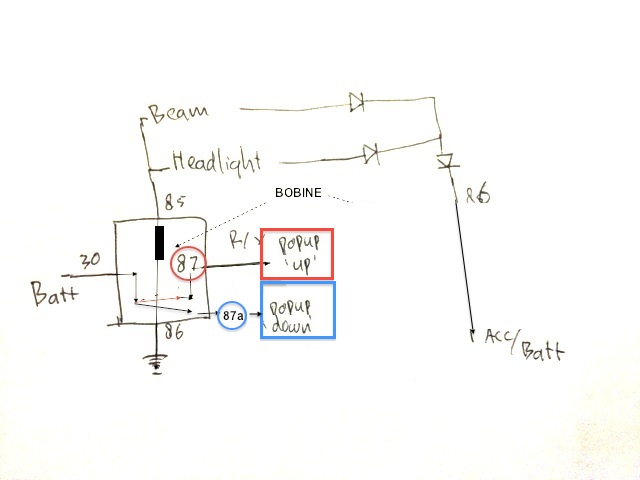 Beam
Headlight
85
BOBINE
86
R/Y
popup
'up'
87
30
Batt
87a
popup
down
86
ACC/Batt